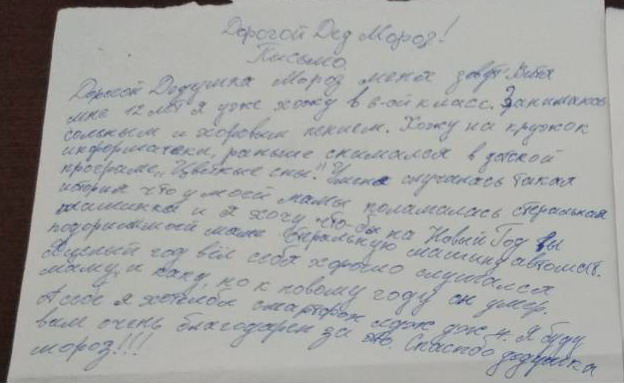 Дорогой Дед Мороз!
Письмо
Дорогой Дедушка Мороз меня зовут Витя
мне 12 лет я уже хожу в 6-ой класс. Занимаюсь
сольным и хоровым пением. Хожу на кружок
информатеки, раньше снимался в детской
програме „Цветные сны". У меня случилась такая
история что у моей мамы поламалась стеральная
машинка и я хочу что-бы на Новый Год вы
подорили моей маме стеральную машину автомат.
Я целый год вёл себя хорошо слушался
маму и папу, но к новому году он умер.
А себе я хотелбы смартфон лдж дж 4. Я буду
вам очень благодарен за это. Спасибо дедушка
мороз!!!